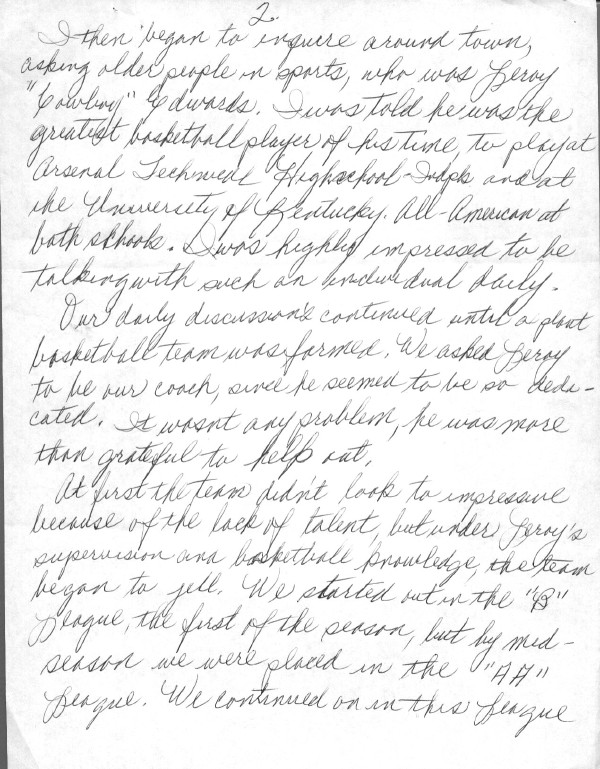 2.
I then began to inquire around town,
asking older people in sports, who was Leroy
"Cowboy" Edwards. I was told he was the
greatest basketball player of his time, to play at
Arsenal Technical Highschool-Indpls and at
the University of Kentucky. All-American at
both schools. I was highly impressed to be
talking with such an individual daily.
Our daily discussions continued until a plant
basketball team was formed. We asked Leroy
to be our coach, since he seemed to be so dedi-
cated. It wasnt any problem, he was more
than grateful to help out.
At first the team didn't look to impressive
because of the lack of talent, but under Leroy's
supervision and basketball knowledge, the team
began to jell. We started out in the "B"
League, the first of the season, but by mid-
season we were placed in the "AA"
League. We continued on in this League